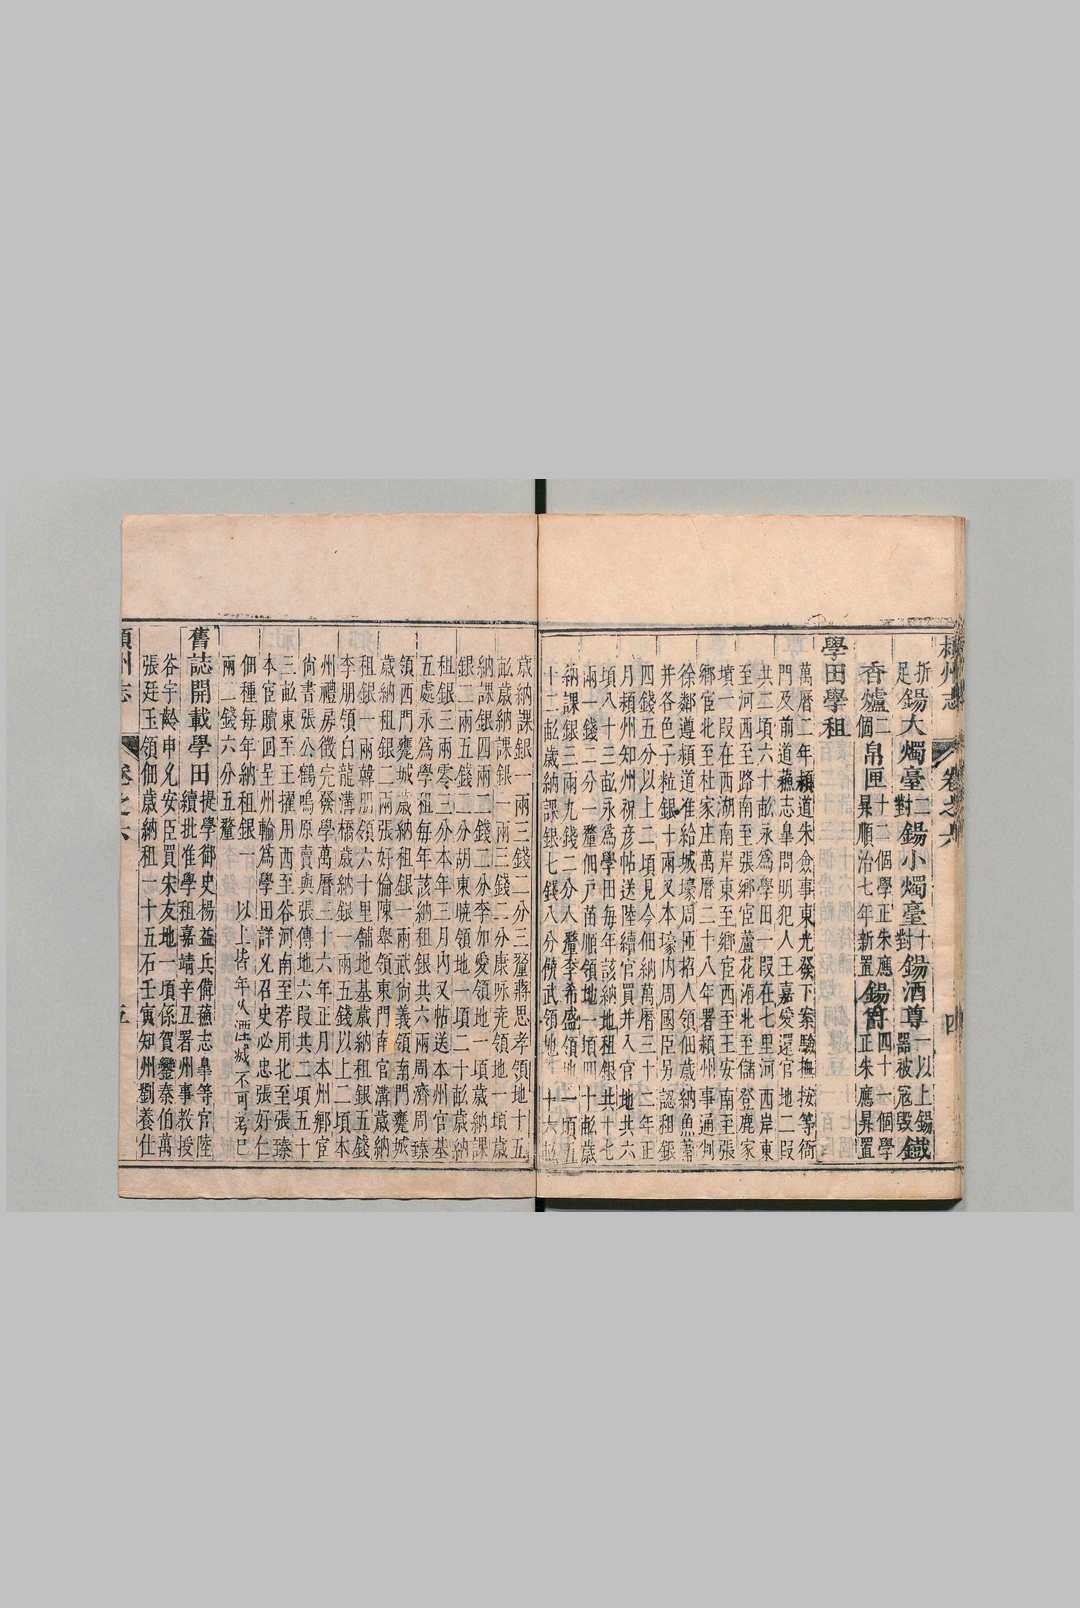 潁州志 卷之六 四
折足鍚大燭臺二對鍚小燭臺十對鍚酒尊一二以上鍚器被寇毀鐵
香爐二個帛匣十二個學正朱應昇順治七年新置鍚爵四十一個學正朱應昇置
學田學租
萬曆二年潁道朱僉事東光發下案驗撫按等衙
門及前道蘓志皐問明犯人王嘉愛還官地二段
共三頃六十畝永為學田一段在七里河西岸東
至河西至路南至張鄉宦蘆花湳北至儲登鹿家
墳一段在西湖南岸東至鄉宦西至王安南至張
鄉宦北至杜家庄萬曆二十八年署潁州事通判
徐鄰遵潁道准給城壕周匝招人領佃歲納魚藕
并各色子粒銀十兩又本壕内周國臣另認租銀
四錢五分以上二頃見今佃納萬曆三十二年正
月潁州知州祝彦帖送陸續官買并入官地共六
頃八十三畝永為學田每年該納地租銀共十七
兩一錢二分一釐佃戸苗順領地一頃四十畝歲
納課銀三兩九錢二分八釐李希盛領地一頃五
十二畝歲納課銀七錢八分儹武領地一十六畝
歲納課銀一兩三錢二分三釐蔣思孝領地十五
畝歲納課銀一兩三錢二分康咏尭領地一頃歲
納課銀四兩二錢二分李加愛領地一頃歲納課
銀二兩五錢三分胡東曉領地一頃二十畝歲納
租銀三兩零三分本年三月内又帖送本州官基
五處永為學租每年該納租銀共六兩周濟周臻
領西門甕城歲納租銀一兩武尚義領南門甕城
歲納租銀二兩張好倫陳舉領東門南官溝歲納
租銀一兩韓朋領六十里舖地基歲納租銀五錢
李朋領白龍溝橋歲納銀一兩五錢以上二項本
州禮房徵完發學萬曆三十六年正月本州鄉宦
尚書張公鶴鳴原賣與張傳地六段共二頃五十
三畝東至王擢用西至谷河南至荐用北至張臻
本宦贖回呈州輸為學田詳允召史必忠張好仁
佃種每年納租銀一
兩二錢六分五釐以上皆年久湮滅不可考已
舊誌開載學田提學御史楊益兵備蘓志皐等官陸續批准學租嘉靖辛丑署州事教授
谷宇齡申允安臣買宋友地一頃係賀鑾秦伯萬
張廷玉領佃歲納租一十五石壬寅知州劉養仕
潁州志 卷之六 五